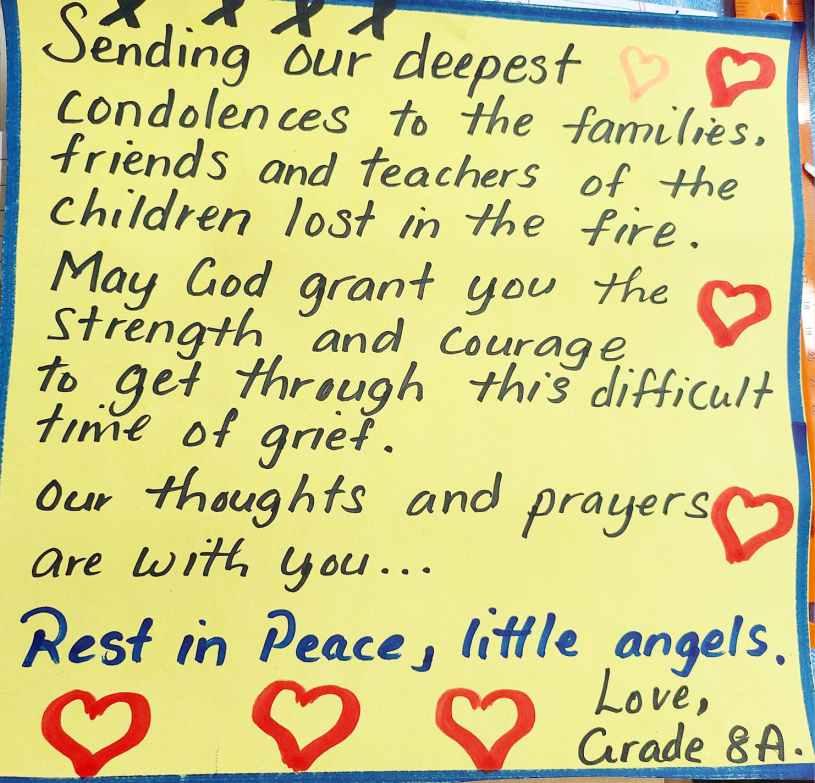 Sending our deepest
condolences to the families,
friends and teachers of the
children lost in the fire.
May God grant you the
strength and courage
to get through this difficult
time of grief.
Our thoughts and prayers
are with you...
Rest in Peace, little angels.
Love,
Grade 8A.